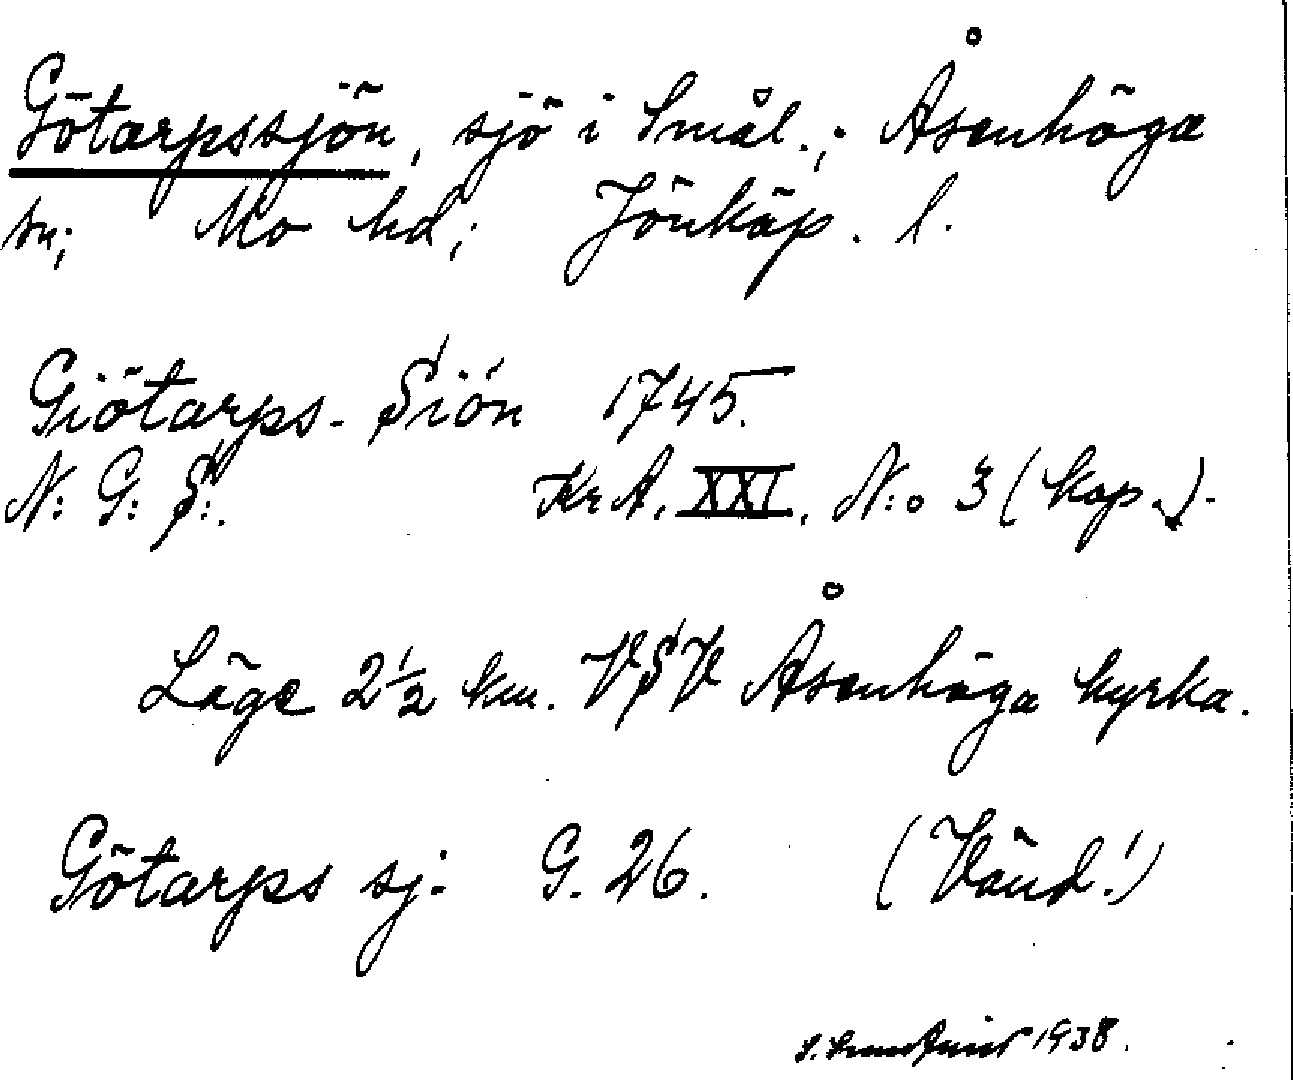 Götarpssjön, sjö i Smål.; Åsenhöga
sn; Mo hd; Jönköp. l.
Giötarps-Siön 1745.
N: G: S:. KrA. XXI. N:o 3 (kop.).
Läge 2½ km. VSV Åsenhöga kyrka.
Götarps sj. G. 26. (Vänd!)
1938.